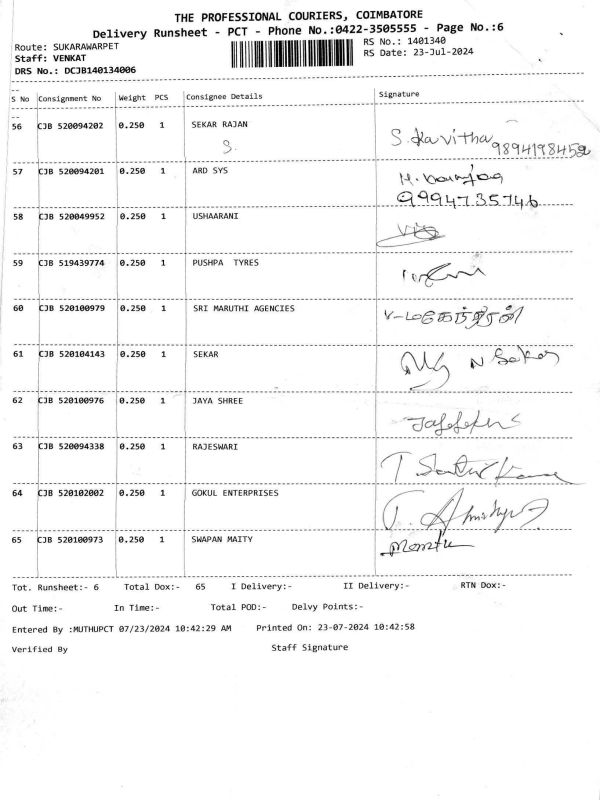 THE PROFESSIONAL COURIERS, COIMBATORE
Delivery Runsheet - PCT - Phone No.:0422-3505555 - Page No.:6
Route: SUKARAWARPET
RS No.: 1401340
Staff: VENKAT
RS Date: 23-Jul-2024
DRS No.: DCJB140134006
S No Consignment No Weight PCS Consignee Details Signature
56 CJB 520094202 0.250 1 SEKAR RAJAN S. Kavitha
S. 9894198452
57 CJB 520094201 0.250 1 ARD SYS
9994735746
58 CJB 520049952 0.250 1 USHAARANI
59 CJB 519439774 0.250 1 PUSHPA TYRES
60 CJB 520100979 0.250 1 SRI MARUTHI AGENCIES V-மகேந்திரன்
61 CJB 520104143 0.250 1 SEKAR N Sekar
62 CJB 520100976 0.250 1 JAYA SHREE
63 CJB 520094338 0.250 1 RAJESWARI
64 CJB 520102002 0.250 1 GOKUL ENTERPRISES
65 CJB 520100973 0.250 1 SWAPAN MAITY
Tot. Runsheet:- 6 Total Dox:- 65 I Delivery:- II Delivery:- RTN Dox:-
Out Time:- In Time:- Total POD:- Delvy Points:-
Entered By :MUTHUPCT 07/23/2024 10:42:29 AM Printed On: 23-07-2024 10:42:58
Verified By Staff Signature